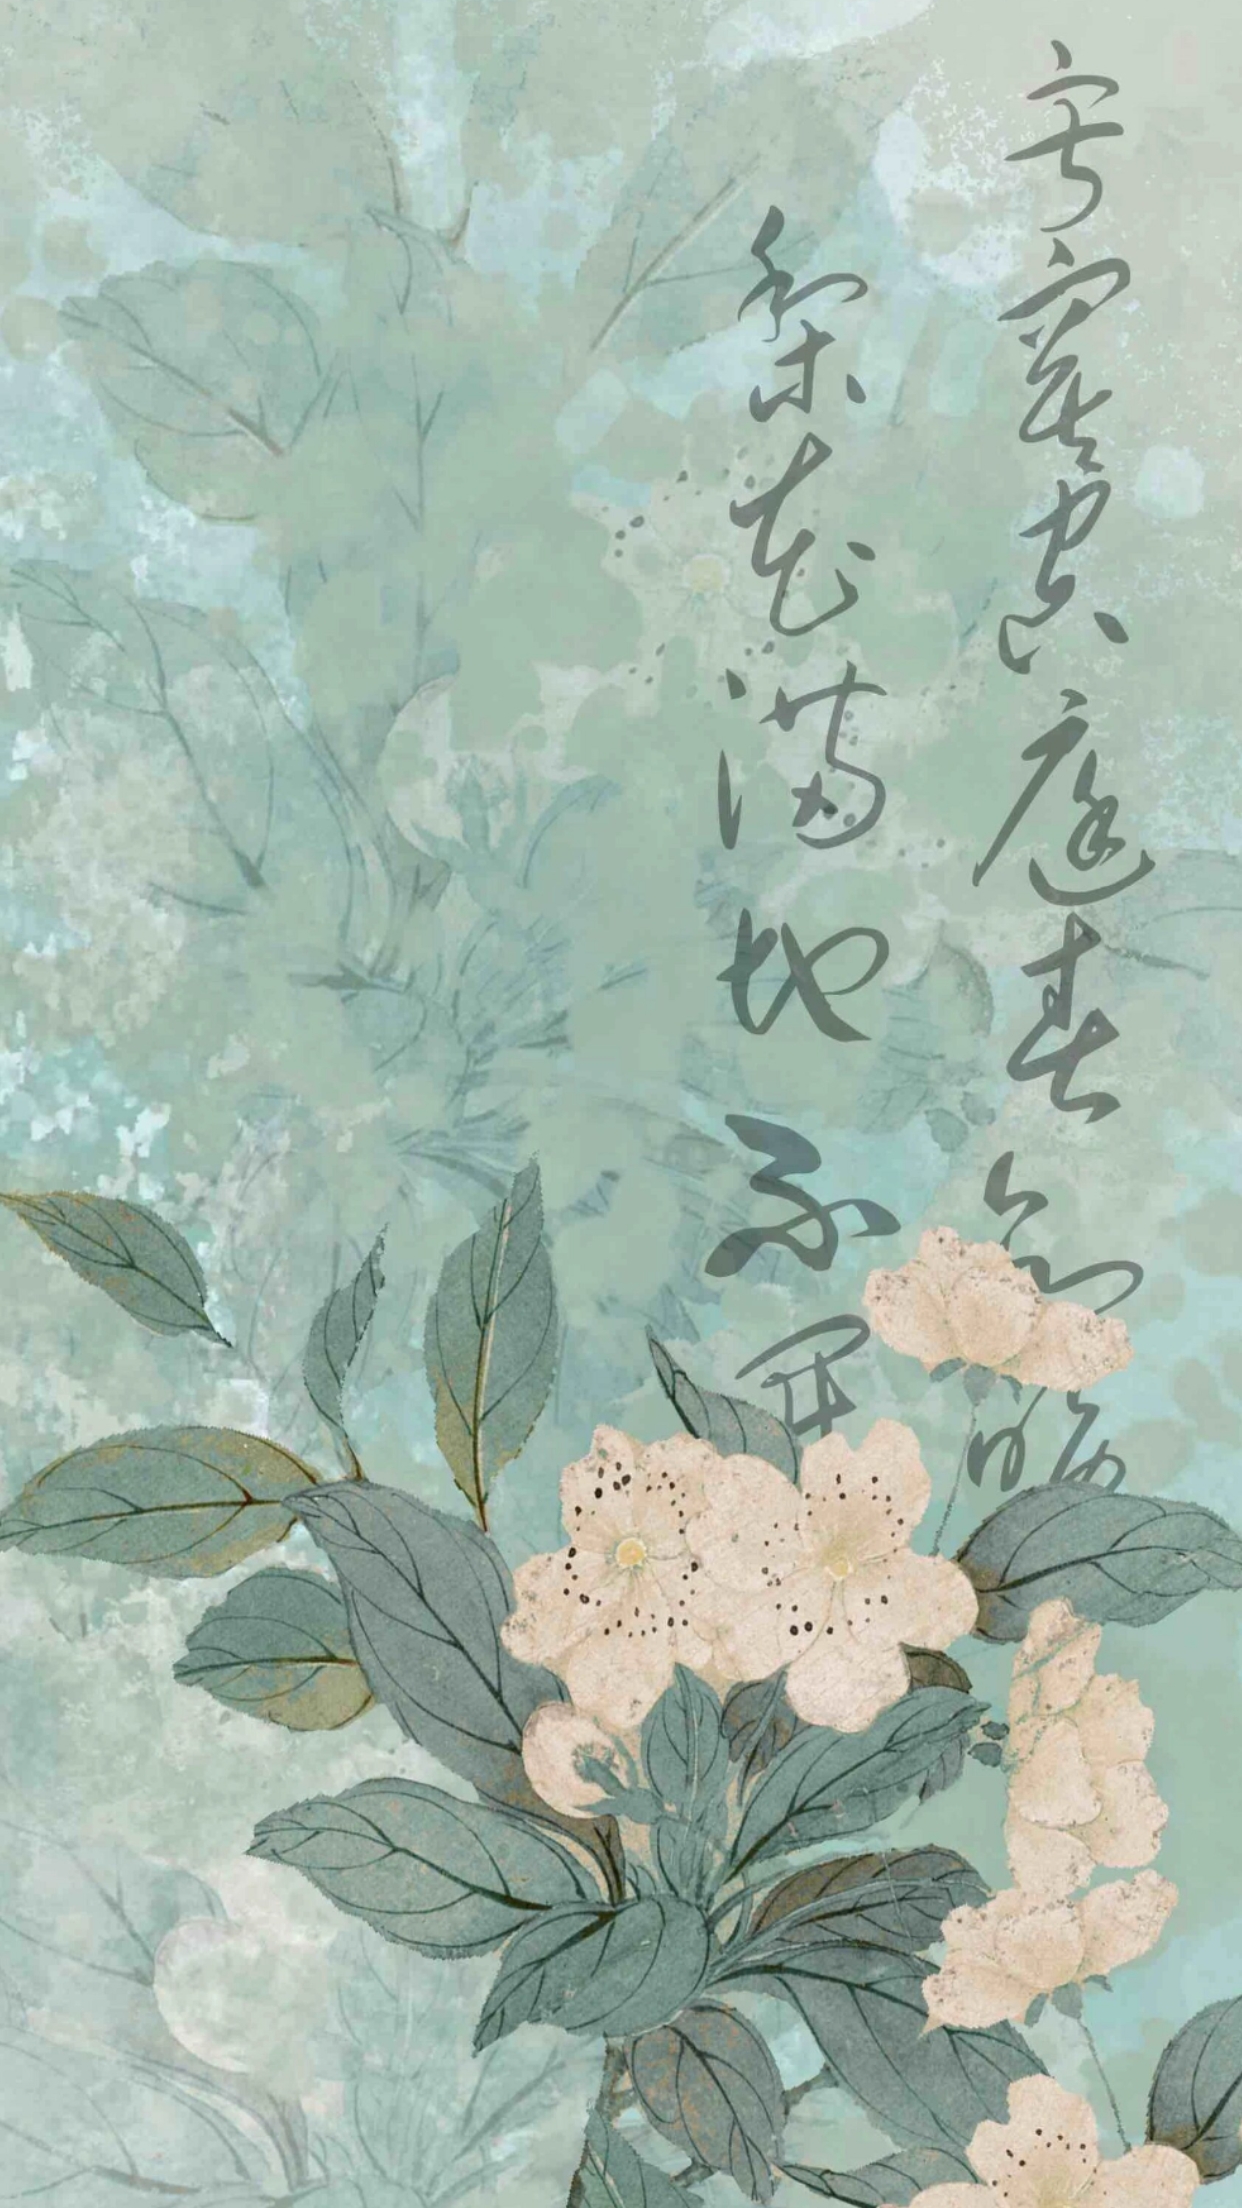 寂寞空庭春欲晚
梨花满地不开